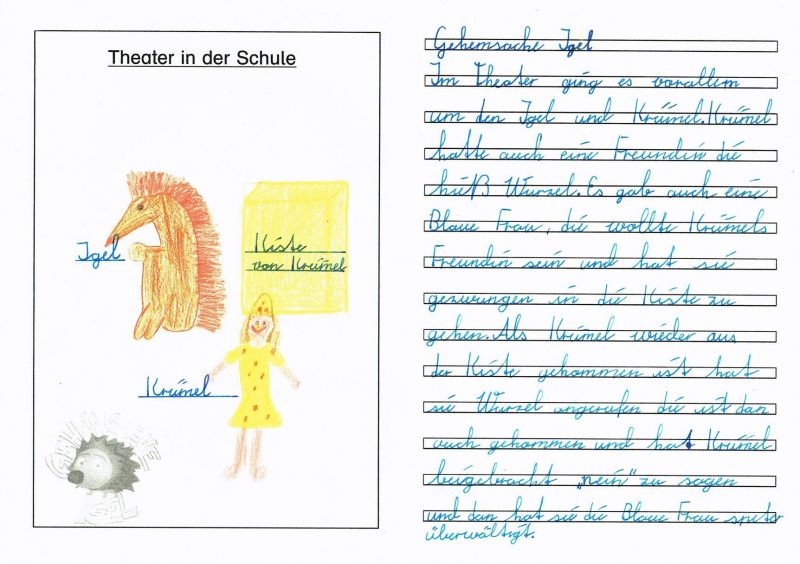 Theater in der Schule
Igel
Kiste
von Krümel
Krümel
GEHEIMSACHE
IGEL
Gehemsache Igel
Im Theater ging es vorallem
um den Igel und Krümel. Krümel
hatte auch eine Freundin die
hieß Wurzel. Es gab auch eine
Blaue Frau, die wollte Krümels
Freundin sein und hat sie
gezwungen in die Kiste zu
gehen. Als Krümel wieder aus
der Kiste gekommen ist hat
sie Wurzel angerufen die ist dan
auch gekommen und hat Krümel
beigebracht „nein“ zu sagen
und dan hat sie die Blaue Frau speter
überwältigt.